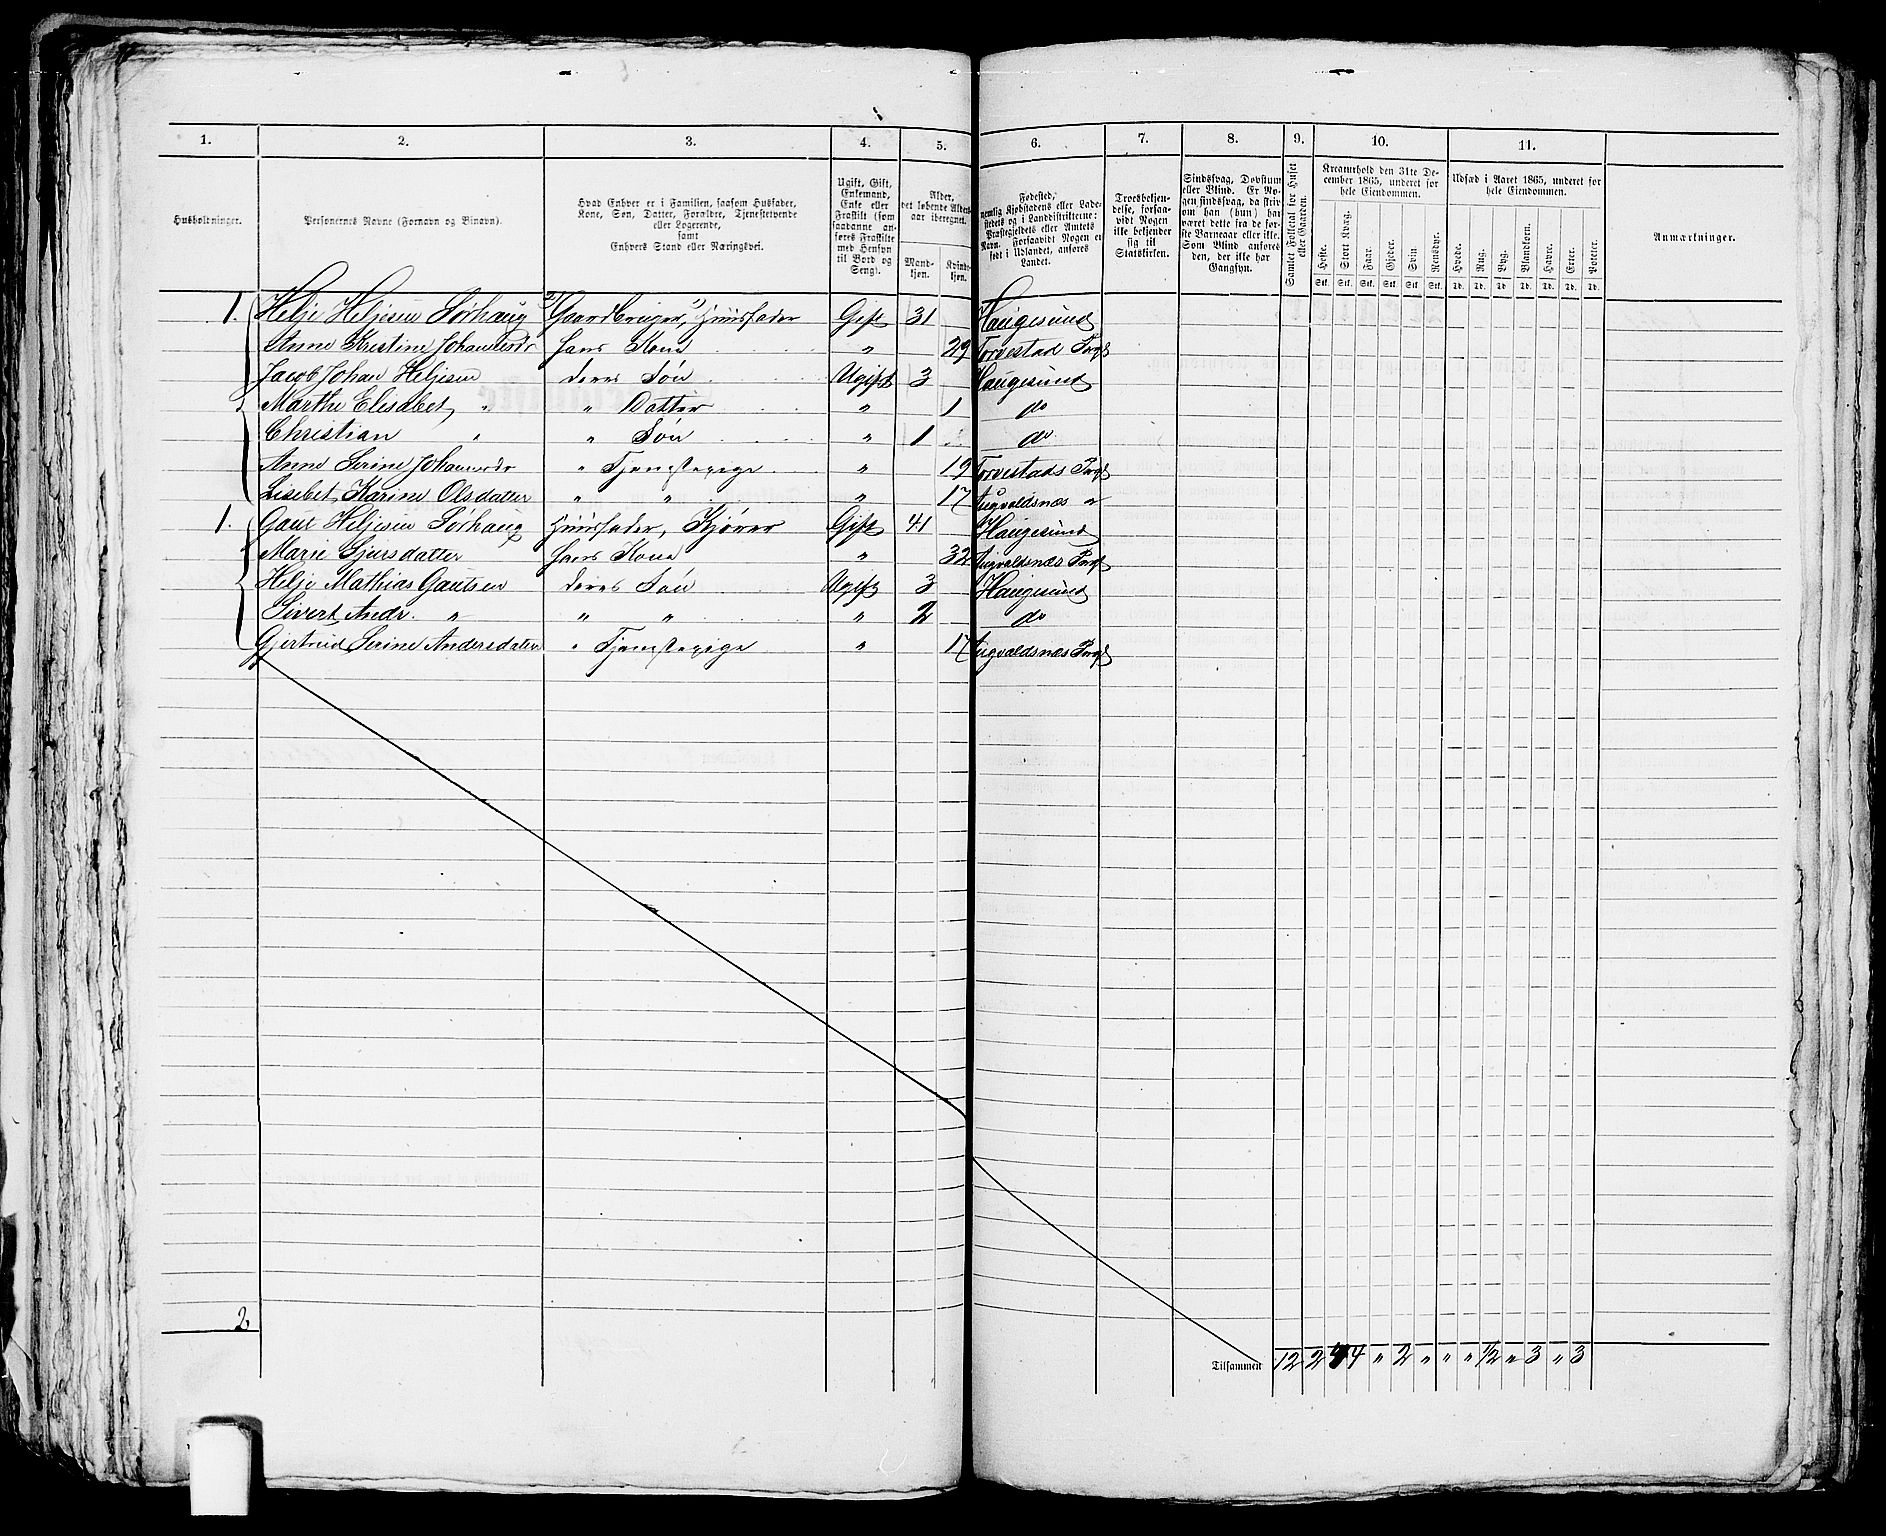 1. 2. 3. 4. 5. 6. 7. 8. 9. 10. 11.
Husholdninger.
Personernes Navne (Fornavn og Binavn).
Hvad Enhver er i Familien, saasom Husfader,
Kone, Søn, Datter, Forældre, Tjenestetyende
eller Logerende,
samt
Enhvers Stand eller Næringsvei.
Ugift, Gift,
Enkemand,
Enke eller
Fraskilt (som
saadanne an-
føres Fraskilte
med Hensyn
til Bord og
Seng).
Alder,
det løbende Alders-
aar iberegnet.
Mand-
kjøn.
Kvind-
kjøn.
Fødested,
nemlig Kjøbstadens eller Lade-
stedets og i Landdistrikterne:
Præstegjeldets eller Amtets
Navn. Forsaavidt Nogen er
født i Udlandet, anføres
Landet.
Troesbekjen-
delse, forsaa-
vidt Nogen
ikke bekjender
sig til
Statskirken.
Sindssvag, Døvstum
eller Blind. Er No-
gen sindssvag, da skriv
om han (hun) har
været dette fra de før-
ste Barneaar eller ikke.
Som Blind anføres
den, der ikke har
Gangsyn.
Samlet Folketal for Huset
eller Gaarden.
Kreaturhold den 31te De-
cember 1865, underet for
hele Eiendommen.
Heste. Stort Kvæg. Faar. Gjeder. Svin. Rensdyr.
Stk. Stk. Stk. Stk. Stk. Stk.
Udsæd i Aaret 1865, underet for
hele Eiendommen.
Hvede. Rug. Byg. Blandkorn. Havre. Erter. Poteter.
Td. Td. Td. Td. Td. Td. Td.
Anmærkninger.
1. Helje Heljesen Sørhaug Gaardbruger, Huusfader Gift 31 Haugesund
Anne Kristine Johannesdr hans Kone " 29 Torvestad Prgl
Jacob Johan Heljesen deres Søn Ugift 3 Haugesund
Marthe Elisabet " " Datter " 1 do
Christian " " Søn " 1 do.
Anne Serine Johannesdr " Tjenstepige " 19 Torvestads Prgl
Lisebet Karine Olsdatter " " " 17 Augvaldsnæs "
1. Gaut Heljesen Sørhaug Huusfader, Kjører Gift 41 Haugesund
Marie Sjursdatter hans Kone " 32 Augvaldsnæs Prgl
Helje Mathias Gautsen deres Søn Ugift 3 Haugesund
Sivert Andr. " " " " 2 do
Gjertrud Serine Andersdatter " Tjenstepige " 17 Augvaldsnæs Prgl
2
Tilsammen 12 2 4 4 " 2 " " " 1/2 " 3 " 3